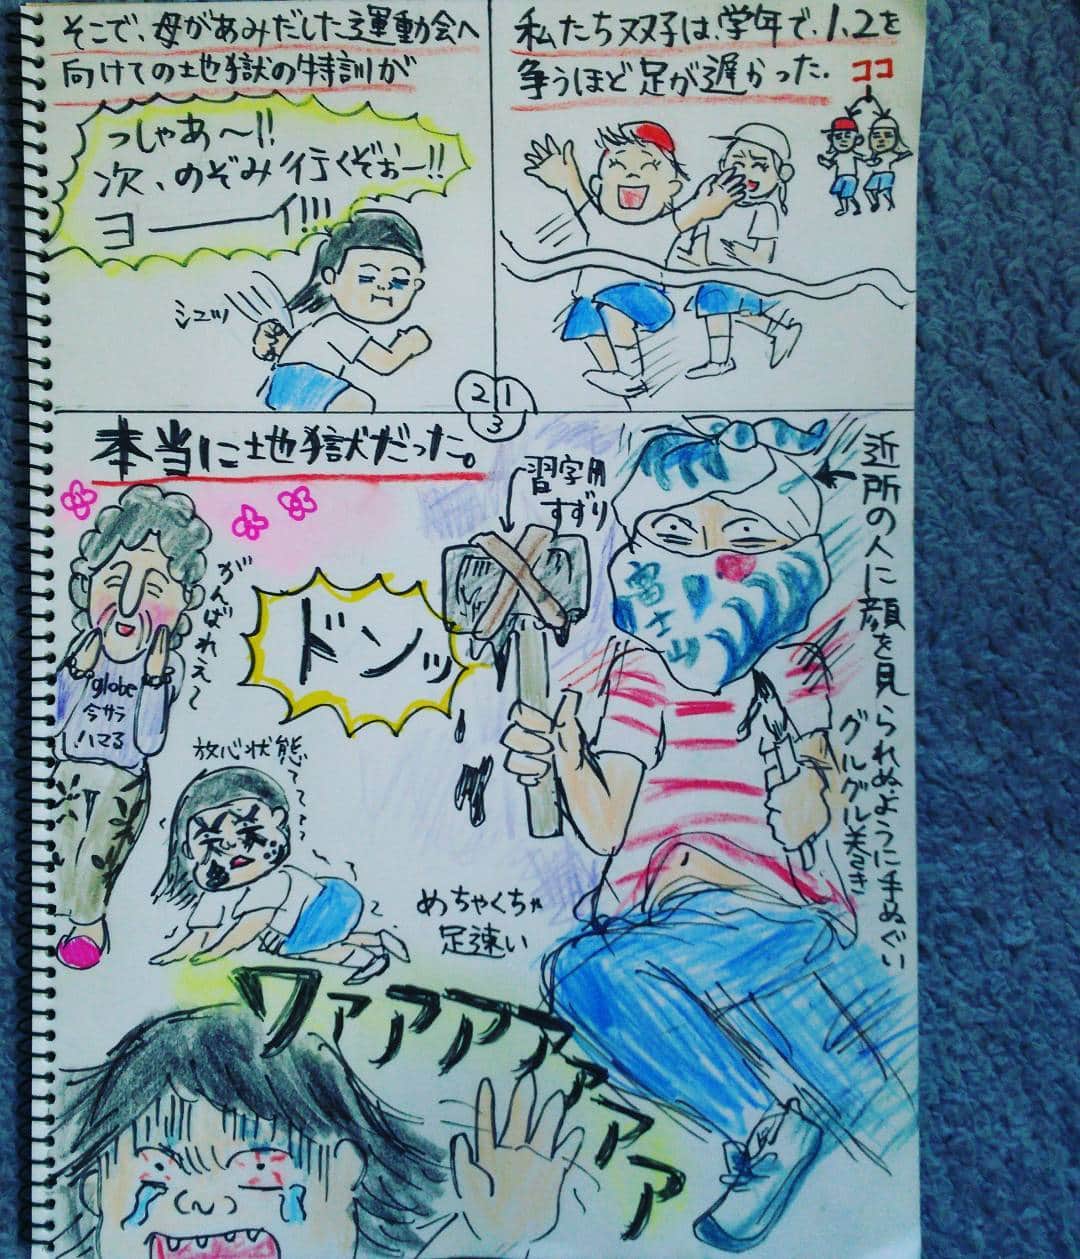 私たち双子は、学年で、1、2を
争うほど足が遅かった.
ココ
そこで、母があみだした運動会へ
向けての地獄の特訓が
っしゃあ〜!!
次、のぞみ行くぞぉー!!
ヨーーーイ!!!
シュッ
2
1
3
本当に地獄だった。
近所の人に顔を見られぬように手ぬぐい
グルグル巻き
習字用
すずり
富士山
ドンッ
がんばれえ〜
globe
今サラ
ハマる!
放心状態
めちゃくちゃ
足速い
ワァァァァァァァァ